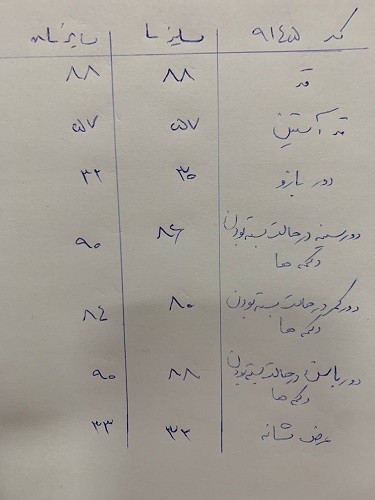 کد سایز سایز
قد ۸۸ ۸۸
قد آستین ۵۷ ۵۷
دور بازو ۳۰ ۳۲
دور سینه در حالت بسته بودن ۸۶ ۹۰
دکمه ها
دور کمر در حالت بسته بودن ۸۰ ۸۴
دکمه ها
دور باسن در حالت بسته بودن ۸۸ ۹۰
دکمه ها
عرض شانه ۳۳ ۳۳